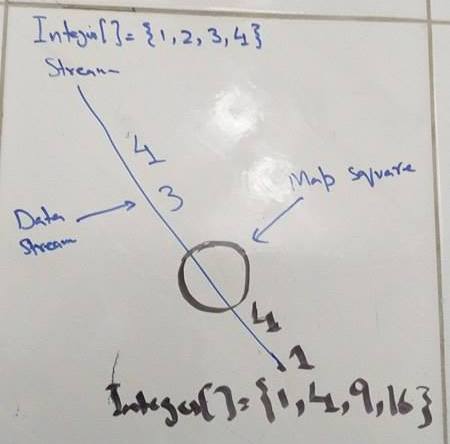 Integer[] = {1, 2, 3, 4}
Stream
4
3
Map square
Data
Stream
4
1
Integer[] = {1, 4, 9, 16}